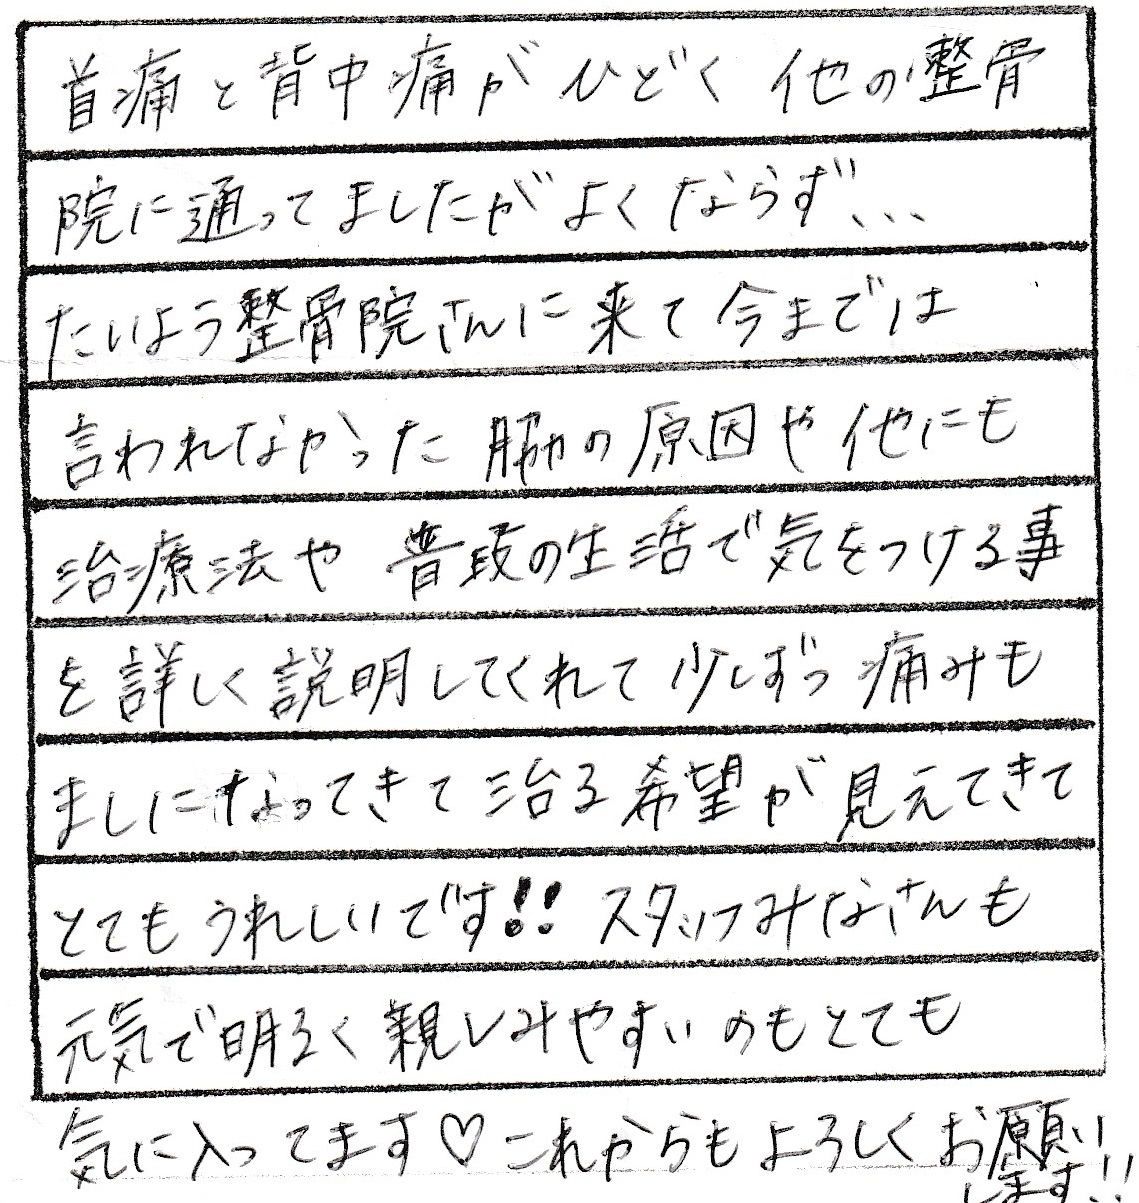 首痛と背中痛がひどく 他の整骨
院に通ってましたがよくならず、、、
たいよう整骨院さんに来て今までは
言われなかった 脇の原因や他にも
治療法や 普段の生活で気をつける事
を詳しく説明してくれて少しずつ 痛みも
ましになってきて治る希望が見えてきて
とてもうれしいです!! スタッフみなさんも
元気で明るく親しみやすいのもとても
気に入ってます♡これからもよろしくお願い
します!!